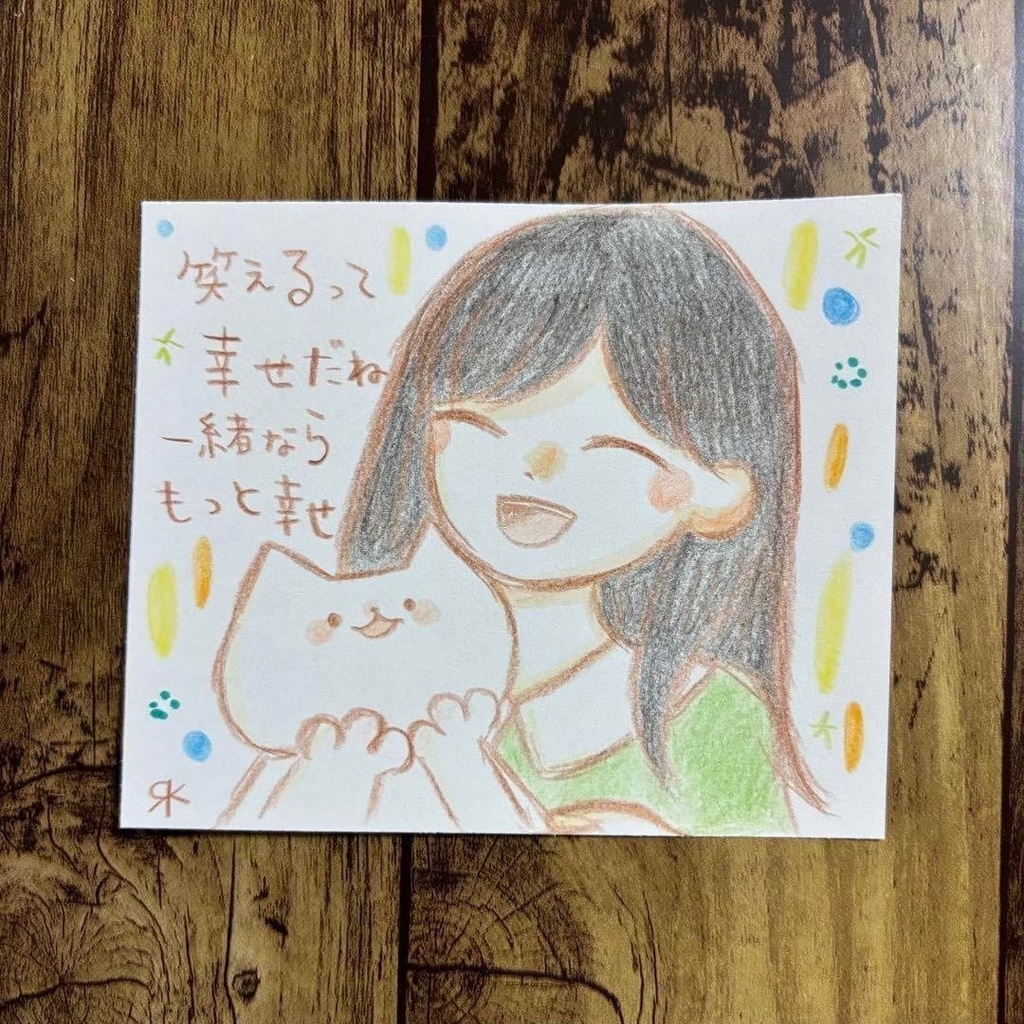 笑えるって
幸せだね
一緒なら
もっと幸せ